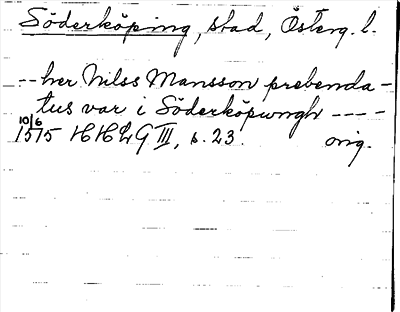 Söderköping, stad, Österg. l.
-- her Nilss Mansson prebenda-
tus var i Söderköpungh ----
10/6
1515 HHLG III, s. 23. orig.